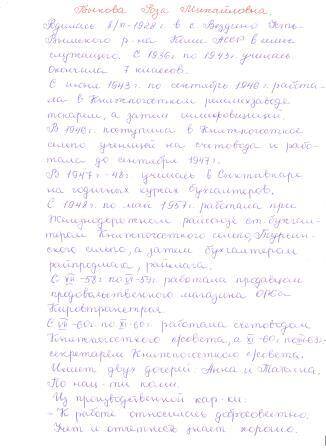 Быкова Роза Михайловна.
Родилась 8/III-1928 г. в с. Вездино Усть-
Вымского р-на Коми АССР в семье
служащего. С 1936г. по 1943г. училась.
Окончила 7 классов.
С июня 1943г. по сентябрь 1946г. работа-
ла в Княжпогостском реммехзаводе
токарем, а затем шлифовщицей.
В 1946г. поступила в Княжпогостское
сельпо ученицей на счетовода и рабо-
тала до сентября 1947г.
В 1947г.-48г. училась в Сыктывкаре
на годичных курсах бухгалтеров.
С 1948г. по май 1957г. работала при
Железнодорожном райсоюзе ст. бухгал-
тером Княжпогостского сельпо,
ского сельпо, а затем бухгалтером
райпродмага, раймага.
С VII-58г. по VI-59г. работала продавцом
продовольственного магазина ОРСа
Кировтранстроя.
С VII-60г. по XI-60г. работала счетоводом
Княжпогостского п/совета, с XI-60г.
секретарём Княжпогостского п/совета.
Имеет двух дочерей Анна и Татьяна.
По нац-ти коми.
Из производственной хар-ки:
- К работе относилась добросовестно.
Учёт и отчётность знает хорошо.